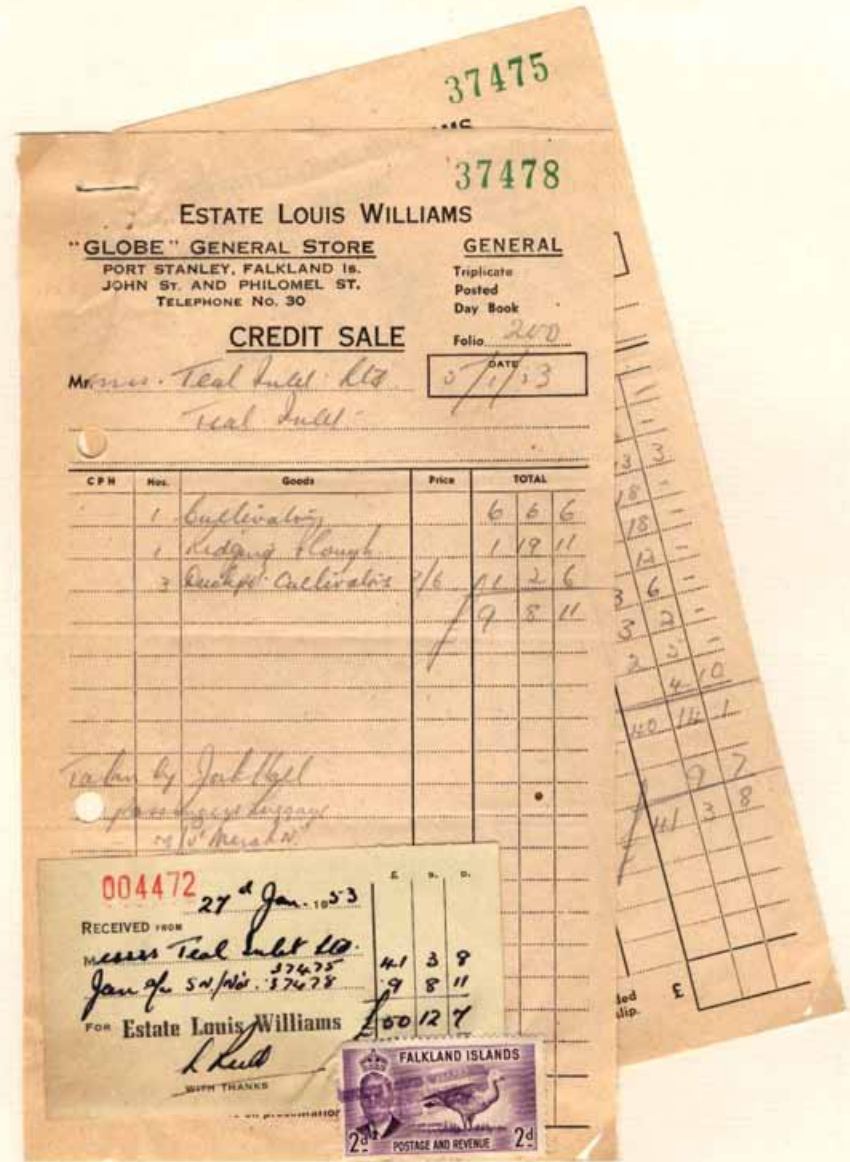 37475
37478
ESTATE LOUIS WILLIAMS
"GLOBE" GENERAL STORE
PORT STANLEY, FALKLAND Is.
JOHN ST. AND PHILOMEL ST.
TELEPHONE NO. 30
GENERAL
Triplicate
Posted
Day Book
Folio 200
CREDIT SALE
DATE
5/1/53
Messrs. Teal Inlet Ltd
Teal Inlet
CPH Nos. Goods Price TOTAL
1 6 6 6
1 Ridging Plough 1 19 11
3 Cultivators 7/6 1 2 6
9 8 11
Taken by Jack
passengers luggage
3 3
18 -
18 -
12 -
3 6 -
3 2 -
2 5 -
4 10
40 14 1
9 7
41 3 8
£
lip.
004472
27d Jan. 1953
£ s. D.
RECEIVED FROM
Messrs Teal Inlet Ltd. 41 3 8
37475
Jan a/c 37478 9 8 11
FOR Estate Louis Williams £50 12 7
WITH THANKS
FALKLAND ISLANDS
2d POSTAGE AND REVENUE 2d